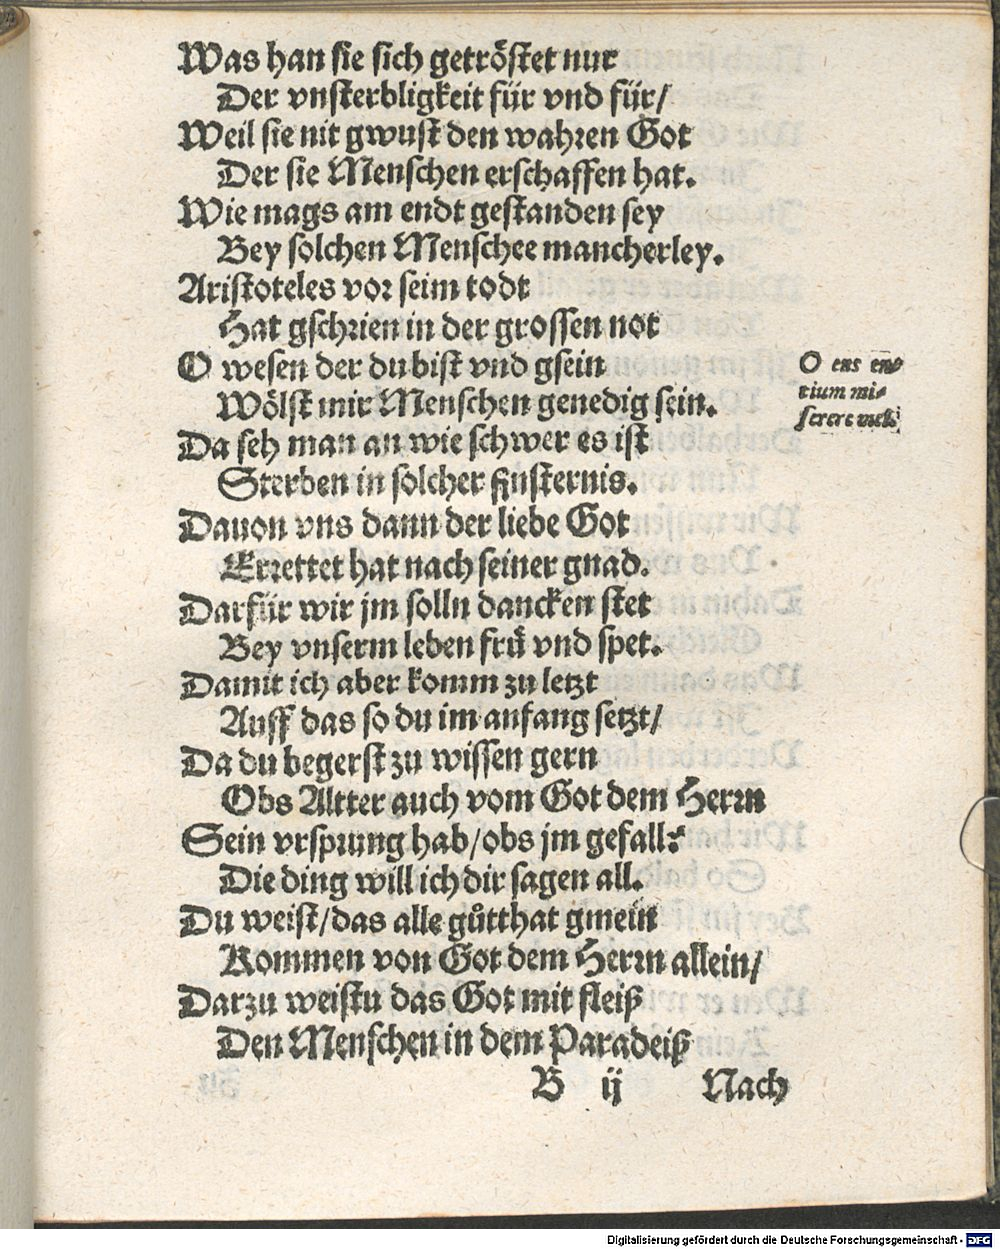 Was han sie sich getröstet nur
Der vnsterbligkeit für vnd für/
Weil sie nit gwust den wahren Got
Der sie Menschen erschaffen hat.
Wie mags am endt gestanden sey
Bey solchen Menschee mancherley.
Aristoteles vor seim todt
Hat gschrien in der grossen not
O wesen der du bist vnd gsein
Wölst mir Menschen genedig sein.
O ens en-
tium mi-
serere mei
Da seh man an wie schwer es ist
Sterben in solcher finsternis.
Dauon vns dann der liebe Got
Errettet hat nach seiner gnad.
Darfür wir jm solln dancken stet
Bey vnserm leben frü vnd spet.
Damit ich aber komm zu letzt
Auff das so du im anfang setzt/
Da du begerst zu wissen gern
Obs Altter auch vom Got dem Herrn
Sein vrsprung hab/obs jm gefall:
Die ding will ich dir sagen all.
Du weist/das alle gůtthat gmein
Kommen von Got dem Herrn allein/
Darzu weistu das Got mit fleiß
Den Menschen in dem Paradeiß
B ij Nach
Digitalisierung gefördert durch die Deutsche Forschungsgemeinschaft - DFG